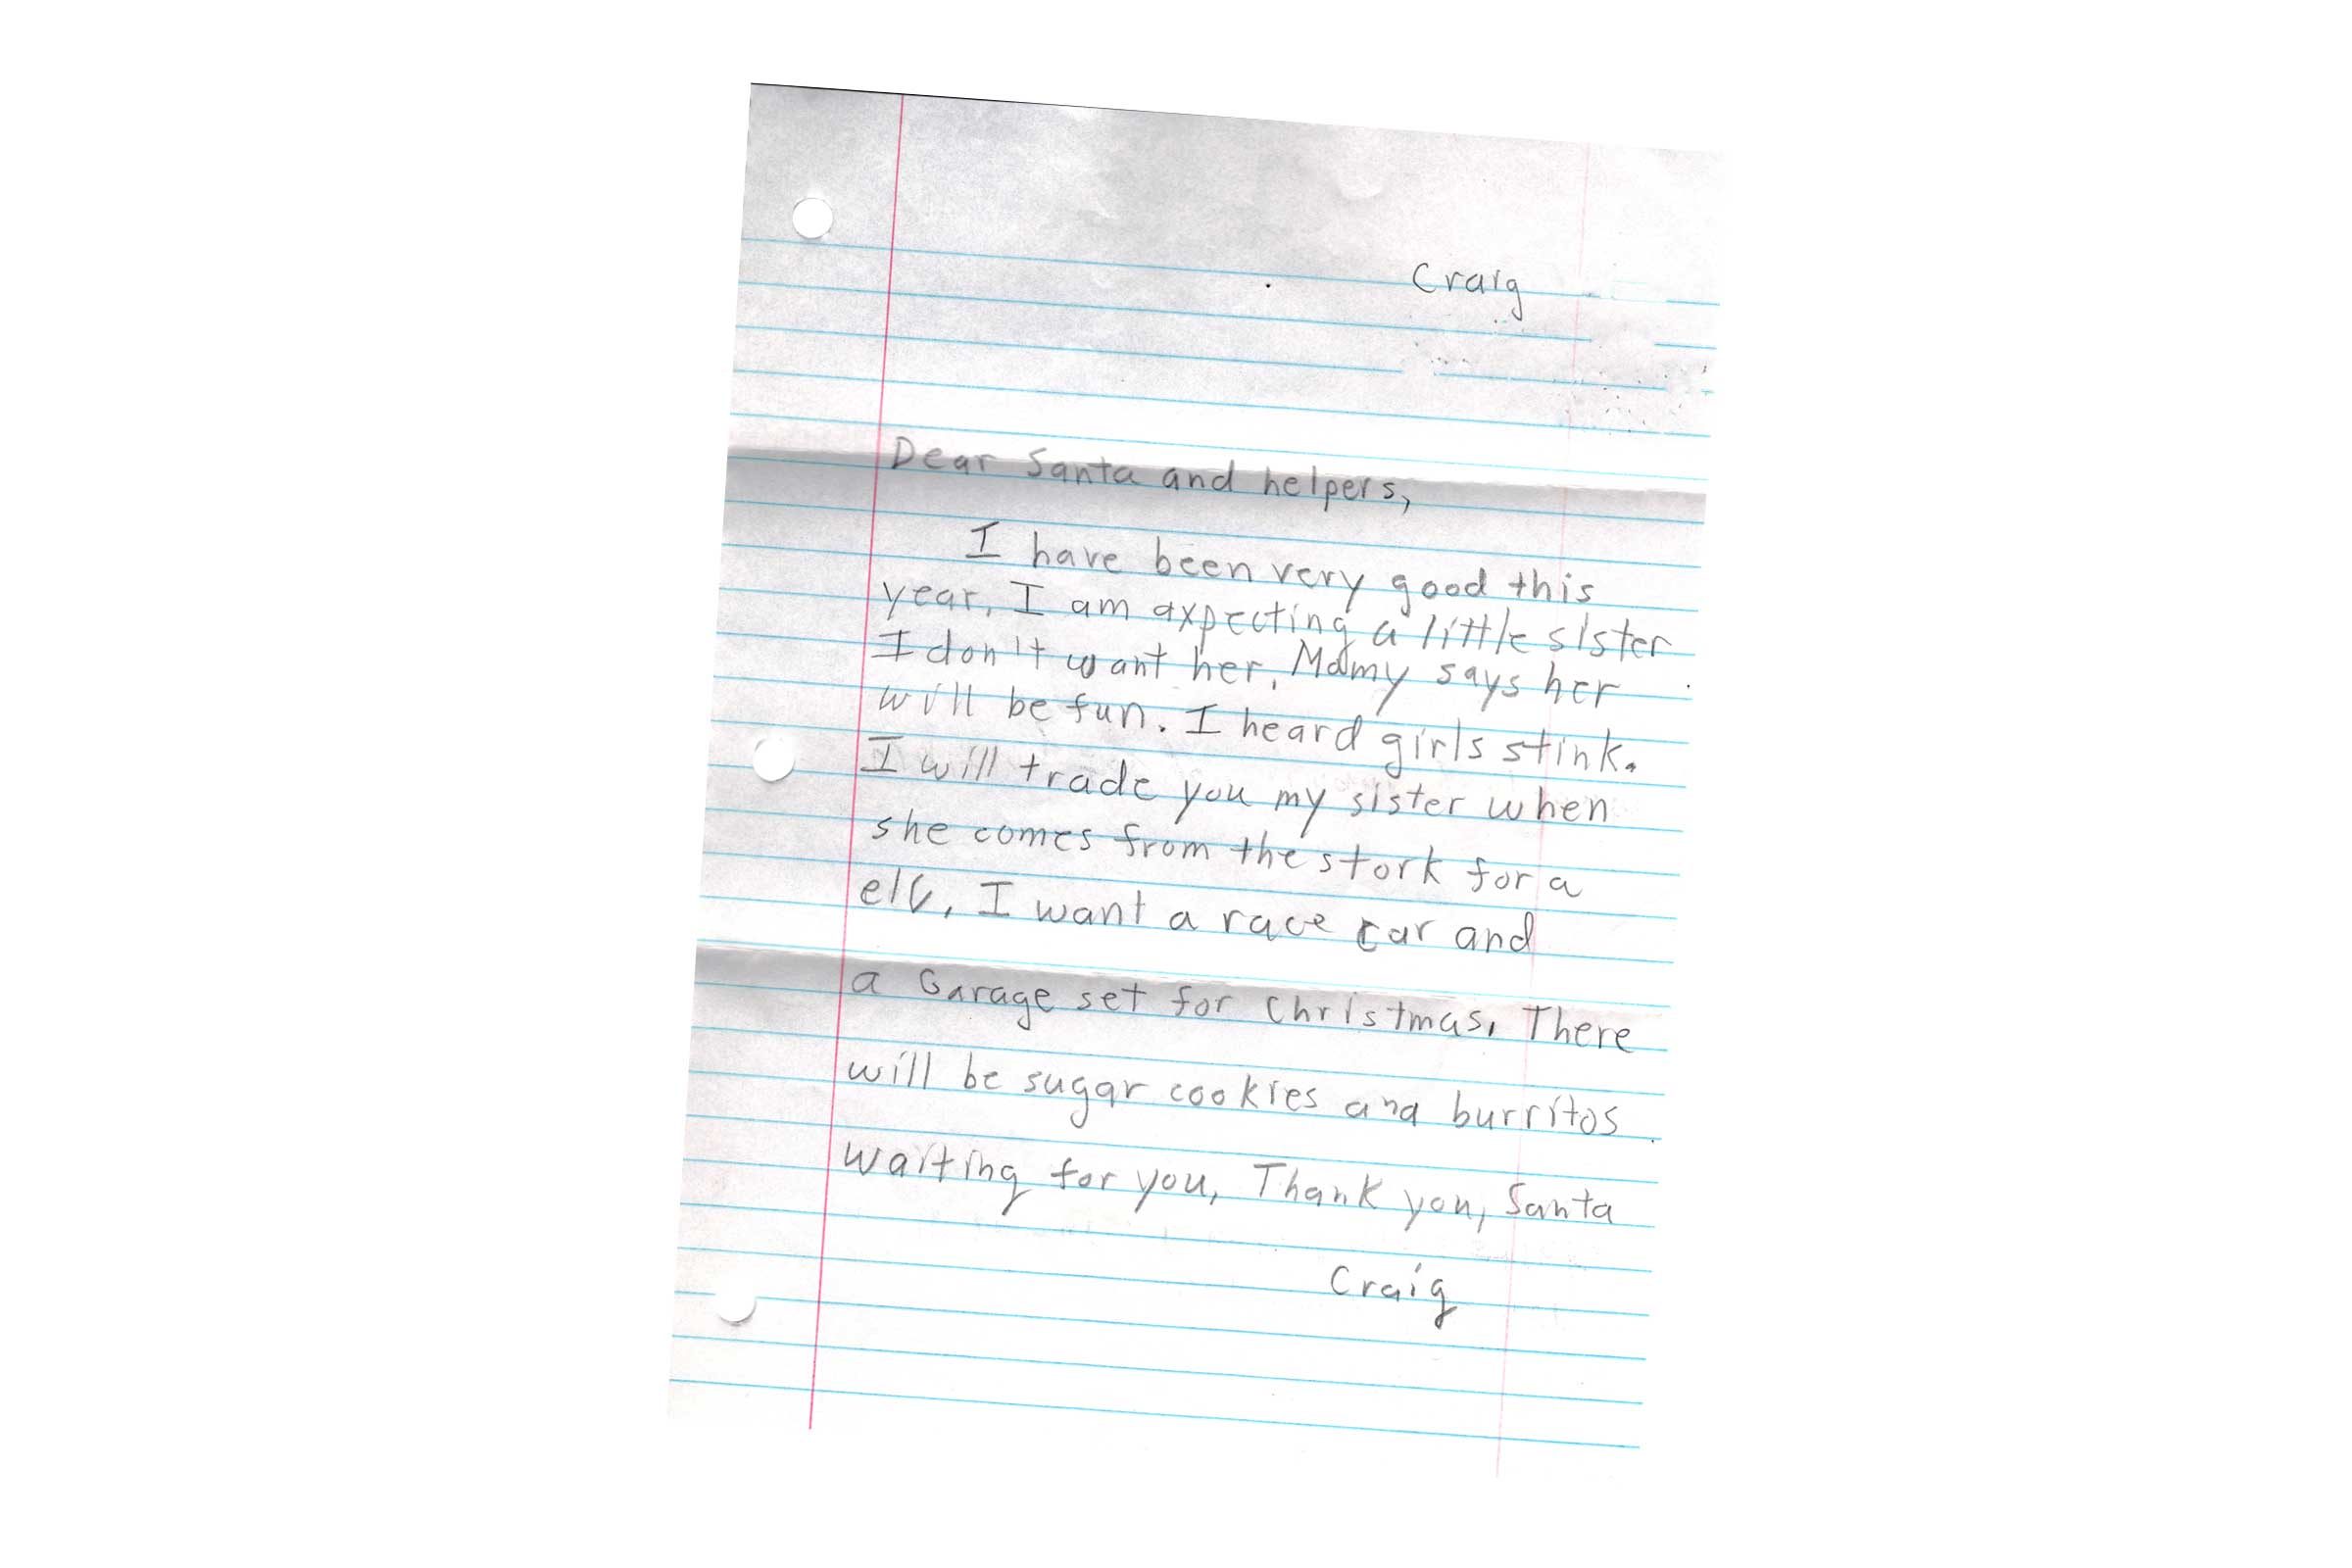 Craig
Dear Santa and helpers,
I have been very good this
year. I am axpecting a little sister
I don't want her. Momy says her
will be fun. I heard girls stink.
I will trade you my sister when
she comes from the stork for a
elv. I want a race car and
a Garage set for Christmas. There
will be sugar cookies and burritos
waiting for you, Thank you, Santa
Craig